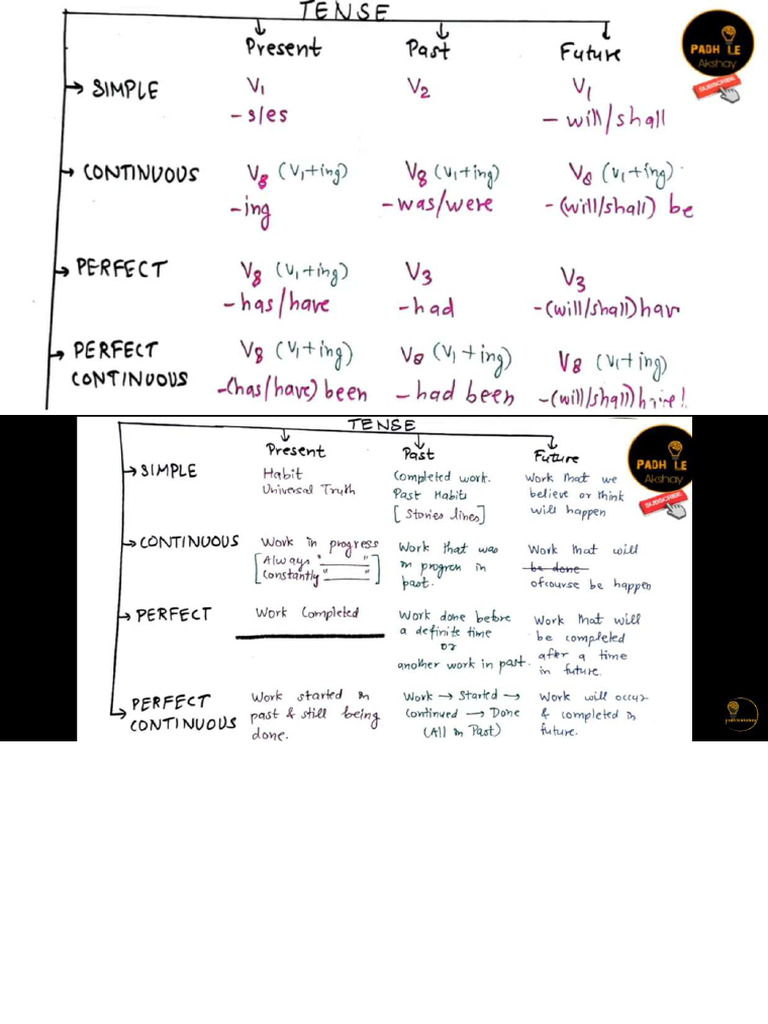 TENSE
Present Past Future
PADH LE
Akshay
SUBSCRIBE
→ SIMPLE V1 V2 V1
-s/es - will/shall
→ CONTINUOUS V8 (V1+ing) V8 (V1+ing) V8 (V1+ing)
-ing -was/were -(will/shall) be
→ PERFECT V8 (V1+ing) V3 V3
-has/have -had -(will/shall)hav
→ PERFECT CONTINUOUS V8 (V1+ing) V8 (V1+ing) V8 (V1+ing)
-(has/have) been -had been -(will/shall)
TENSE
Present Past Future
PADH LE
Akshay
SUBSCRIBE
→ SIMPLE Habit Completed work. Work that we
Universal Truth Past Habits believe or think
[Stories lines] will happen
→ CONTINUOUS Work in progress Work that was Work that will
[Always " " in progren in be done
Constantly " "] past. ofcourse be happen
→ PERFECT Work Completed Work done before Work that will
a definite time be completed
or after a time
another work in past. in future.
→ PERFECT Work started in Work → Started → Work will occur
CONTINUOUS past & still being Continued → Done & completed in
done. (All in Past) future.